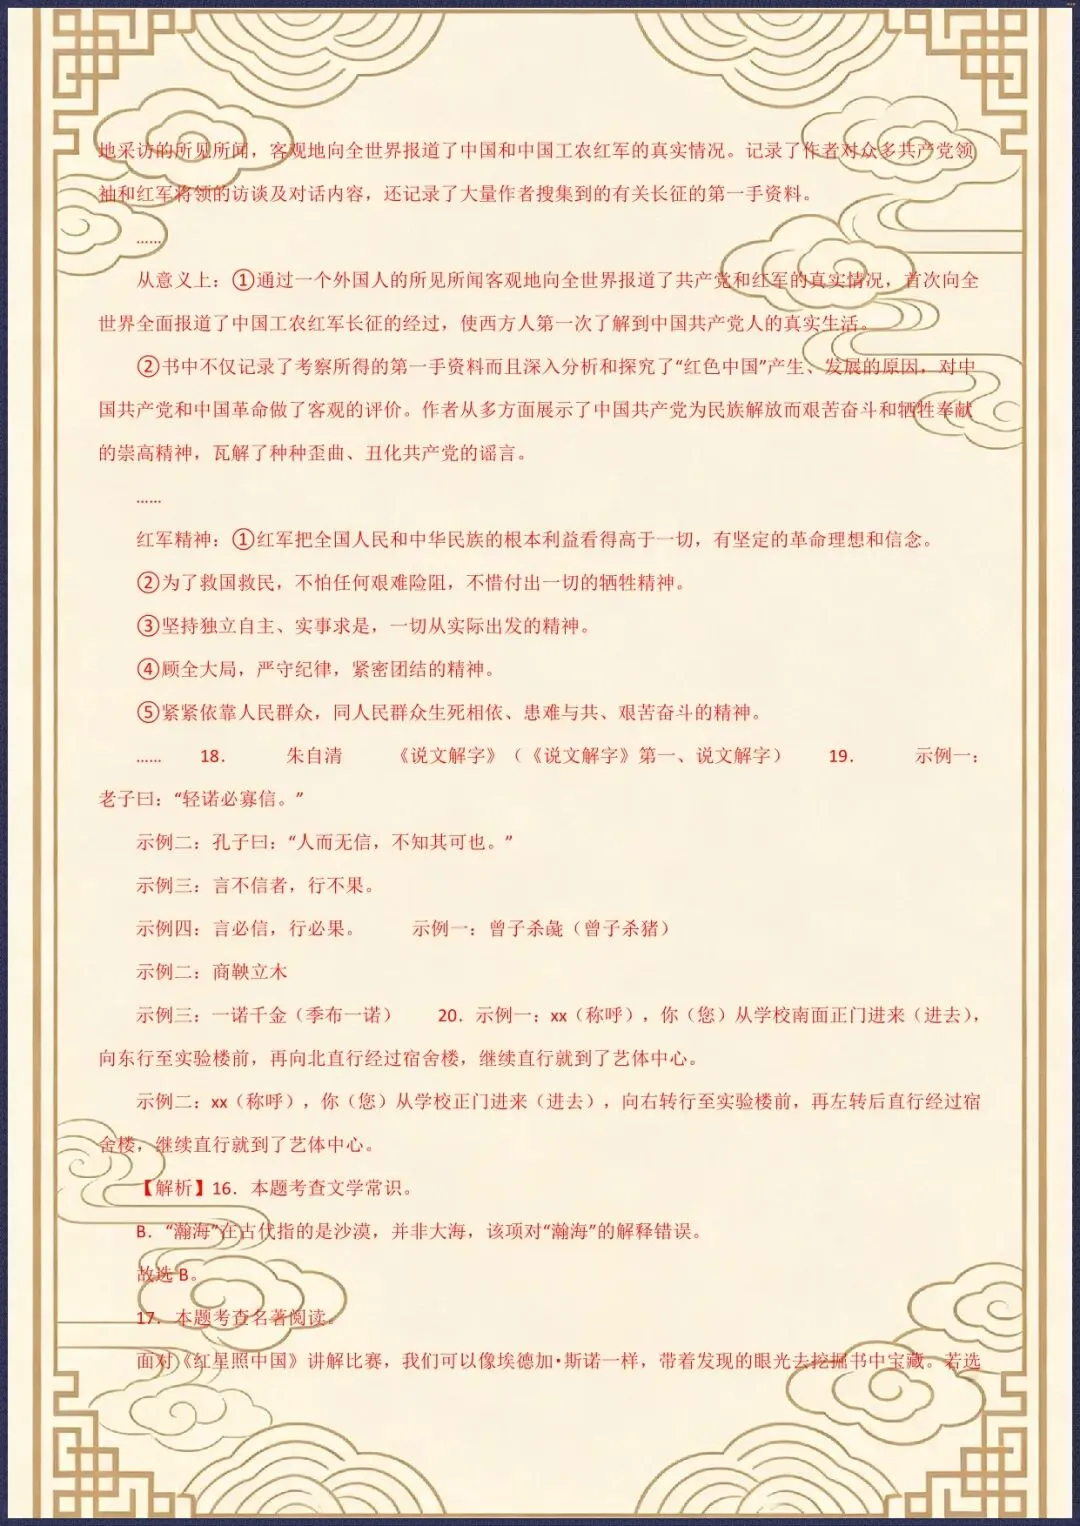 地采访的所见所闻，客观地向全世界报道了中国和中国工农红军的真实情况。记录了作者对众多共产党领
袖和红军将领的访谈及对话内容，还记录了大量作者搜集到的有关长征的第一手资料。
……
从意义上：①通过一个外国人的所见所闻客观地向全世界报道了共产党和红军的真实情况，首次向全
世界全面报道了中国工农红军长征的经过，使西方人第一次了解到中国共产党人的真实生活。
②书中不仅记录了考察所得的第一手资料而且深入分析和探究了“红色中国”产生、发展的原因，对中
国共产党和中国革命做了客观的评价。作者从多方面展示了中国共产党为民族解放而艰苦奋斗和牺牲奉献
的崇高精神，瓦解了种种歪曲、丑化共产党的谣言。
……
红军精神：①红军把全国人民和中华民族的根本利益看得高于一切，有坚定的革命理想和信念。
②为了救国救民，不怕任何艰难险阻，不惜付出一切的牺牲精神。
③坚持独立自主、实事求是，一切从实际出发的精神。
④顾全大局，严守纪律，紧密团结的精神。
⑤紧紧依靠人民群众，同人民群众生死相依、患难与共、艰苦奋斗的精神。
…… 18． 朱自清 《说文解字》（《说文解字》第一、说文解字） 19． 示例一：
老子曰：“轻诺必寡信。”
示例二：孔子曰：“人而无信，不知其可也。”
示例三：言不信者，行不果。
示例四：言必信，行必果。 示例一：曾子杀彘（曾子杀猪）
示例二：商鞅立木
示例三：一诺千金（季布一诺） 20．示例一：xx（称呼），你（您）从学校南面正门进来（进去），
向东行至实验楼前，再向北直行经过宿舍楼，继续直行就到了艺体中心。
示例二：xx（称呼），你（您）从学校正门进来（进去），向右转行至实验楼前，再左转后直行经过宿
舍楼，继续直行就到了艺体中心。
【解析】16．本题考查文学常识。
B．“瀚海”在古代指的是沙漠，并非大海，该项对“瀚海”的解释错误。
故选 B。
17．本题考查名著阅读。
面对《红星照中国》讲解比赛，我们可以像埃德加•斯诺一样，带着发现的眼光去挖掘书中宝藏。若选